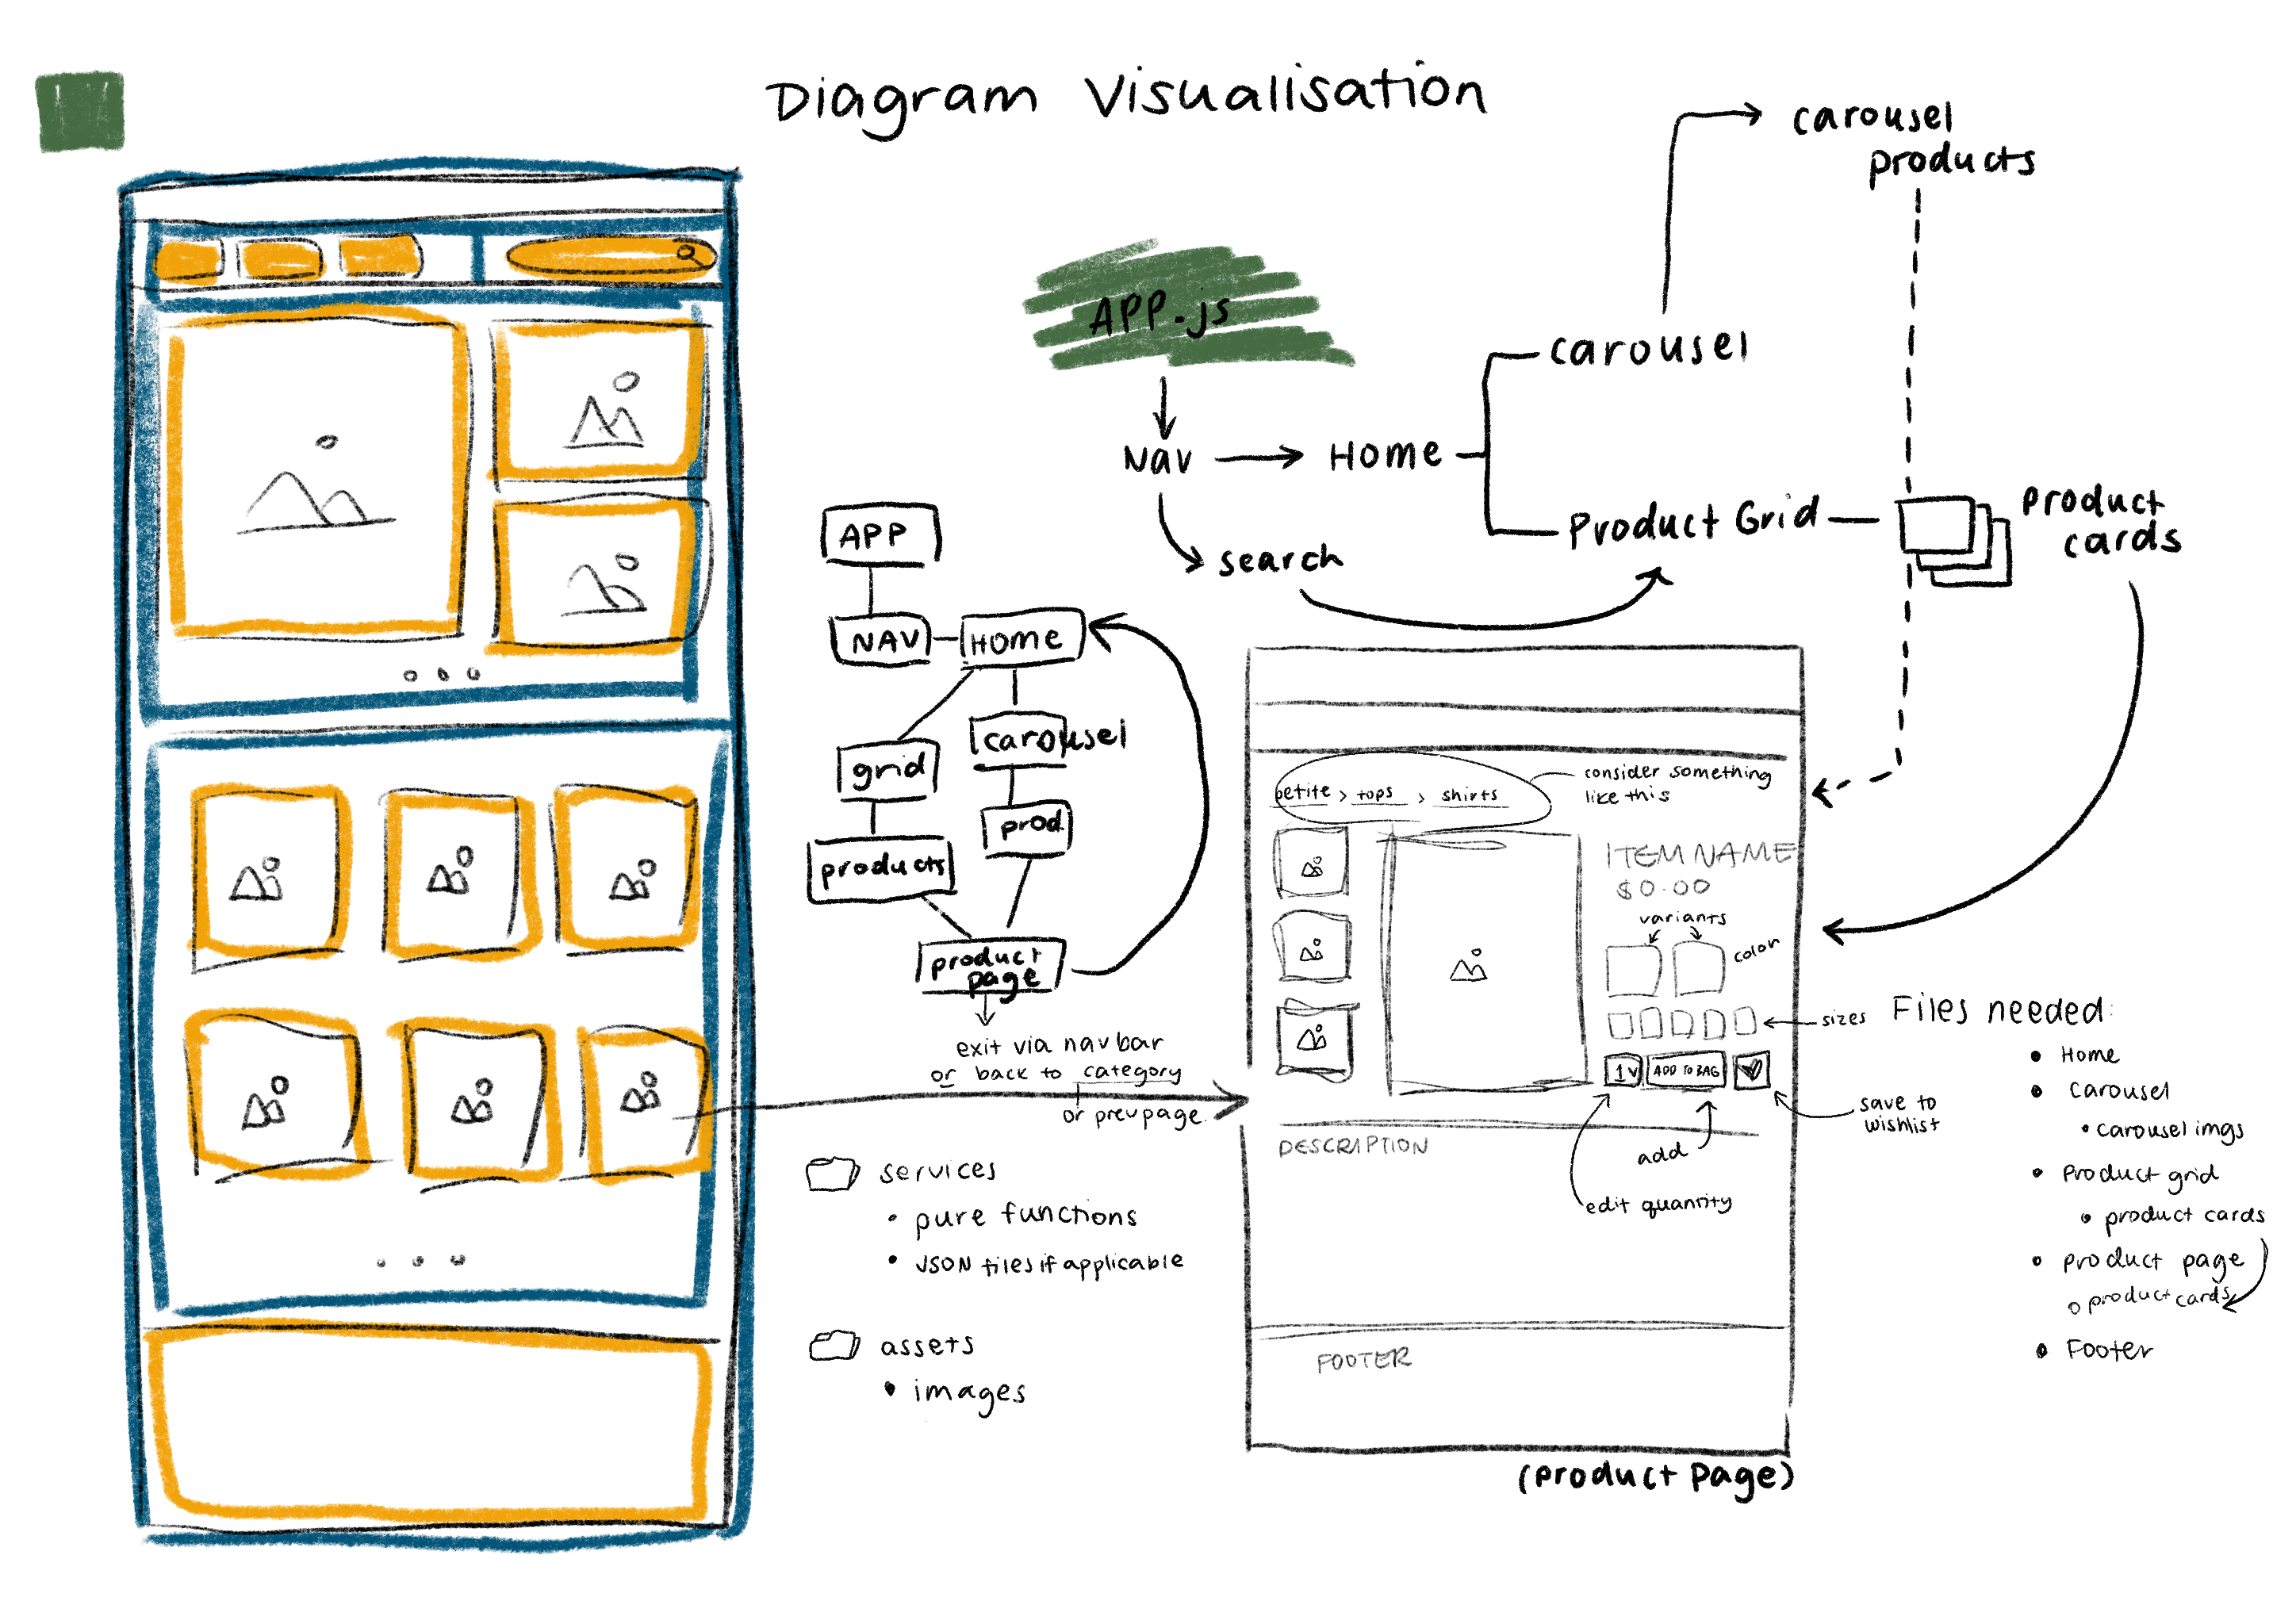 Diagram Visualisation
carousel
products
APP.js
carousel
Nav
Home
Product Grid
product
cards
search
APP
NAV
HOME
grid
carousel
products
prod.
product
page
exit via nav bar
or back to category
or prev page.
services
• pure functions
• JSON files if applicable
assets
• images
petite > tops > shirts
consider something
like this
ITEM NAME
$0.00
variants
color
sizes
1 v
ADD TO BAG
save to
wishlist
add
edit quantity
DESCRIPTION
FOOTER
(product page)
Files needed:
• Home
• Carousel
• carousel imgs
• Product grid
• product cards
• product page
○ product cards
• Footer